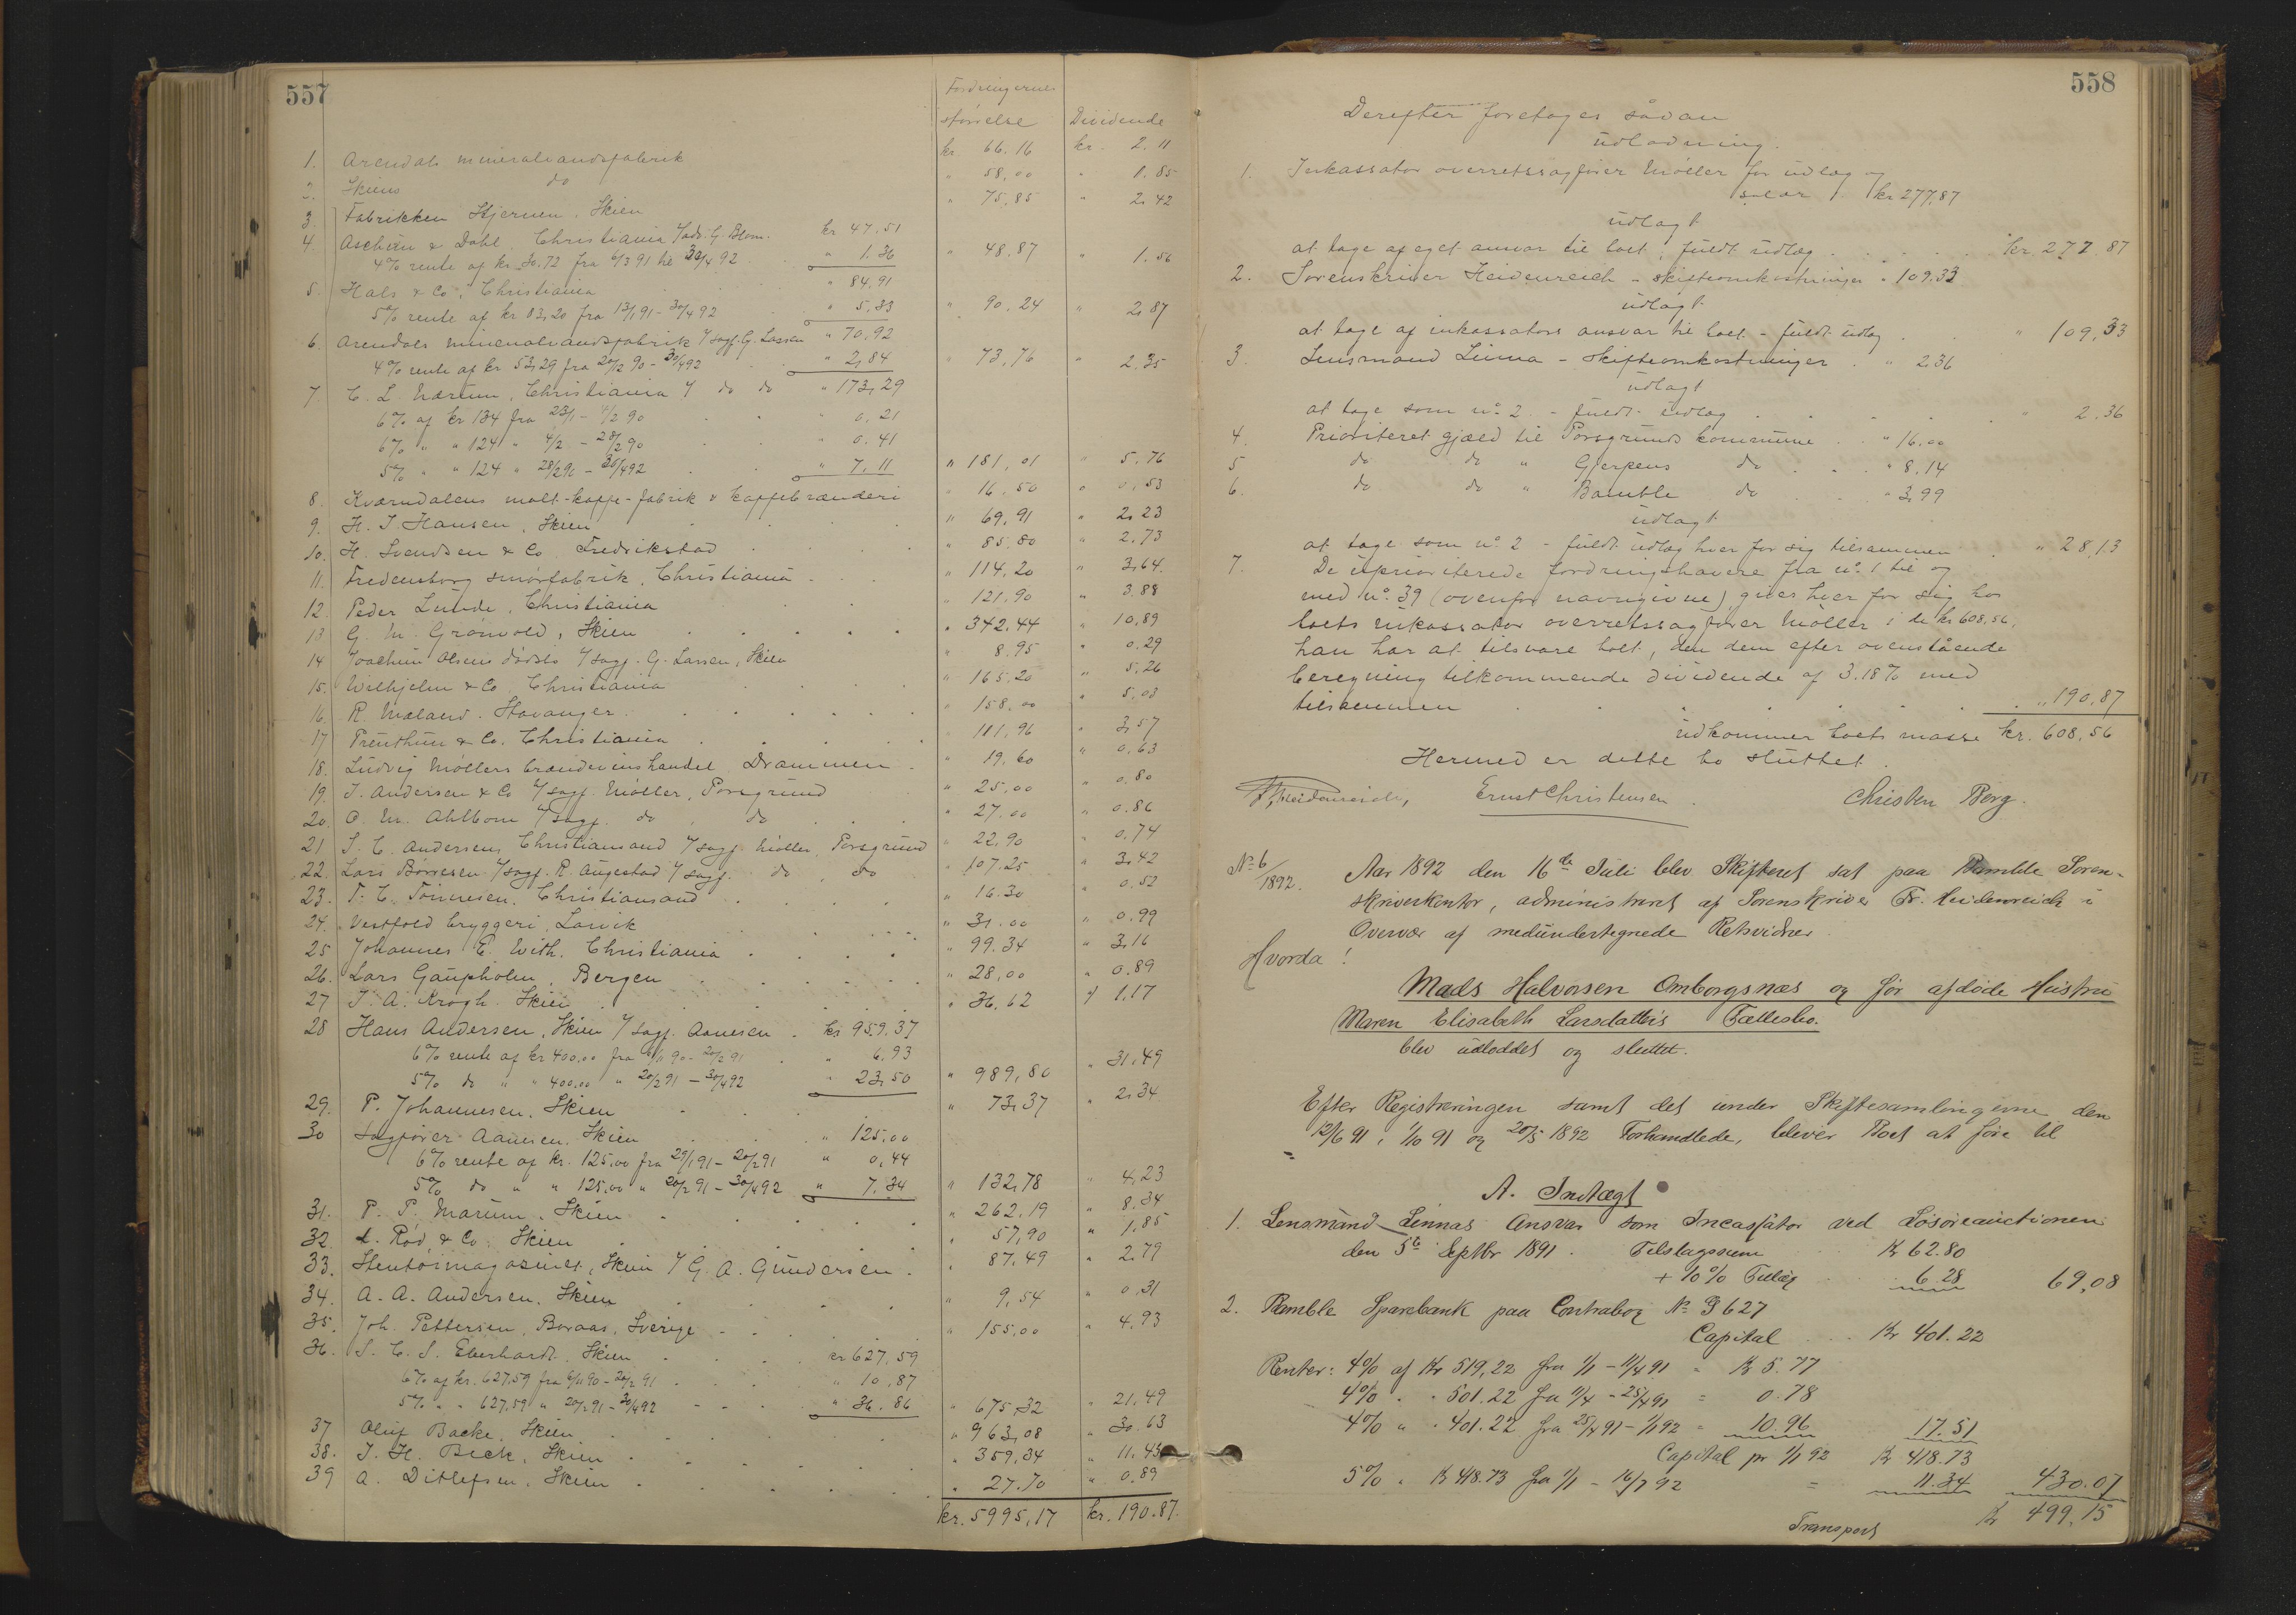 557
Fordringernes
størrelse Dividende
1. Arendals mineralvandsfabrik kr. 66.16 kr. 2.11
2. Skiens do " 58,00 " 1.85
3. Fabrikken Stjernen, Skien " 75,85 " 2,42
4. Aschim & Dahl, Christiania v/adv. G. Blom. kr 47,51
4% rente af kr 30.72 fra 6/3 91 til 30/4 92 " 1.36 " 48,87 " 1.56
5. Hals & Co, Christiania " 84,91
5% rente af kr 83,20 fra 13/1 91 - 30/4 92 " 5,33 " 90,24 " 2,87
6. Arendals mineralvandsfabrik v/sagf. G. Lassen " 70,92
4% rente af kr 53,29 fra 20/12 90 - 30/4 92 " 2,84 " 73,76 " 2.35
7. C. L. Nærum, Christiania v/ do do " 173,29
6% af kr 134 fra 23/1 - 4/2 90 " 0,21
6% " " 124 " 4/2 - 28/2 90 " 0.41
5% " " 124 " 28/2 91 - 30/4 92 " 7,11 " 181,01 " 5.76
8. Kværndalens malt-kaffe-fabrik & kaffebrænderi " 16,50 " 0,53
9. H. J. Hansen, Skien " 69,91 " 2,23
10. H. Svendsen & Co, Fredrikstad " 85.80 " 2,73
11. Fredensborg smørfabrik, Christiania " 114,20 " 3,64
12. Peder Lunde, Christiania " 121.90 " 3.88
13 G. M. Grønvold, Skien " 342,44 " 10,89
14 Joachim Olsens dødsbo v/sagf. G. Lassen, Skien " 8.95 " 0.29
15. Wilhjelm & Co, Christiania " 165,20 " 5,26
16. R. Mæland, Stavanger " 158,00 " 5,03
17 Trenthun & Co. Christiania " 111,96 " 3,57
18. Ludvig Møllers brændevinshandel, Drammen " 19,60 " 0,63
19. J. Andersen & Co v/sagf. Møller, Porsgrund " 25,00 " 0,80
20. O. M. Ahlbom v/sagf. do, do " 27.00 " 0.86
21 S. C. Andersen, Christiansand v/sagf. Møller, Porsgrund " 22,90 " 0,74
22. Lars Børresen v/sagf. R. Augestad v/sagf. do, do " 107.25 " 3,42
23. T. C. Tønnesen, Christiansand " 16.30 " 0.52
24. Vestfold bryggeri, Larvik " 31.00 " 0.99
25 Johannes E. With, Christiania " 99.34 " 3,16
26. Lars Gaupholm, Bergen " 28,00 " 0.89
27 J. A. Krogh, Skien " 36,62 " 1,17
28 Hans Andersen, Skien v/sagf. Aanesen kr 959.37
6% rente af kr 400.00 fra 6/11 90 - 20/2 91 " 6,93
5% do " " 400.00 " 20/2 91 - 30/4 92 " 23,50 " 989,80 " 31,49
29. P. Johannesen, Skien " 73,37 " 2,34
30 Sagfører Aanesen, Skien " 125,00
6% rente af kr. 125,00 fra 29/1 91 - 20/2 91 " 0,44
5% do " " 125,00 " 20/2 91 - 30/4 92 " 7,34 " 132,78 " 4,23
31. P. P. Marum, Skien " 262,19 " 8.34
32. L. Rød & Co. Skien " 57,90 " 1,85
33. Stentøimagasinet, Skien v/ G. A. Gundersen " 87,49 " 2.79
34. A. A. Andersen, Skien " 9,54 " 0,31
35. Joh. Pettersen, Boraas, Sverige " 155,00 " 4,93
36. S. C. S. Eberhardt, Skien kr 627,59
6% af kr. 627.59 fra 6/11 90 - 20/2 91 " 10,87
5% " " 627.59 " 20/2 91 - 30/4 92 " 36.86 " 675,32 " 21,49
37 Oluf Backe, Skien " 963,08 " 30.63
38. J. H. Beck, Skien " 359,34 " 11.43
39 A. Ditlefsen, Skien " 27.70 " 0.89
kr. 5995,17 kr. 190.87.
558
Derefter foretages sådan
udlodning.
1. Inkassator overretssagfører Møller for udlæg og
salær kr 277,87
udlagt
at tage af eget ansvar til boet, fuldt udlæg kr. 277.87
2. Sorenskriver Heidenreich - skifteomkostninger " 109.33
udlagt
at tage af inkassators ansvar til boet - fuldt udlæg " 109.33
3. Lensmand Linna - skifteomkostninger " 2,36
udlagt
at tage som no. 2 - fuldt udlæg " 2.36
4. Prioriteret gjæld til Porsgrunds kommune " 16.00
5 do do " Gjerpens do " 8.14
6. do do " Bamble do " 3,99
udlagt
at tage som no. 2 - fuldt udlæg hver for sig tilsammen " 28,13
7. De uprioriterede fordringshavere fra no. 1 til og
med no. 39 (ovenfor navngivne), gives hver for sig hos
boets inkassator overretssagfører Møller i de kr 608.56,
han har at tilsvare boet, den dem efter ovenstående
beregning tilkommende dividende af 3.18% med
tilsammen " 190,87
udkommer boets masse kr. 608,56
Hermed er dette bo sluttet.
Fr. Heidenreich, Ernst Christensen. Christen Berg.
No. 6/1892. Aar 1892 den 16de Juli blev Skifteret sat paa Bamble Soren-
skriverkontor, administreret af Sorenskriver Fr. Heidenreich i
Overvær af medundertegnede Retsvidner.
Hvorda!
Mads Halvorsen Omborgsnæs og før afdøde Hustru
Maren Elisabeth Larsdatters Fællesbo.
blev udloddet og sluttet.
Efter Registreringen samt det under Skiftesamlingerne den
12/6 91, 1/10 91 og 20/5 1892 Forhandlede, bliver Boet at føre til
A. Indtægt
1. Lensmand Linnas Ansvar som Incassator ved Løsøreauctionen
den 5te Septbr 1891. Tilslagssum Kr 62.80
+ 10% Tillæg 6.28 69,08
2. Bamble Sparebank paa Contrabog No. 3627
Capital Kr 401.22
Renter: 4% af Kr 519,22 fra 1/1 - 11/4 91 = Kr 5.77
4% " " 501.22 fra 11/4 - 25/4 91 = 0.78
4% " " 401.22 fra 25/4 91 - 1/1 92 = 10.96 17.51
Capital pr 1/1 92 Kr 418.73
5% " Kr 418.73 fra 1/1 - 16/7 92 = 11.34 430.07
Transport Kr 499.15